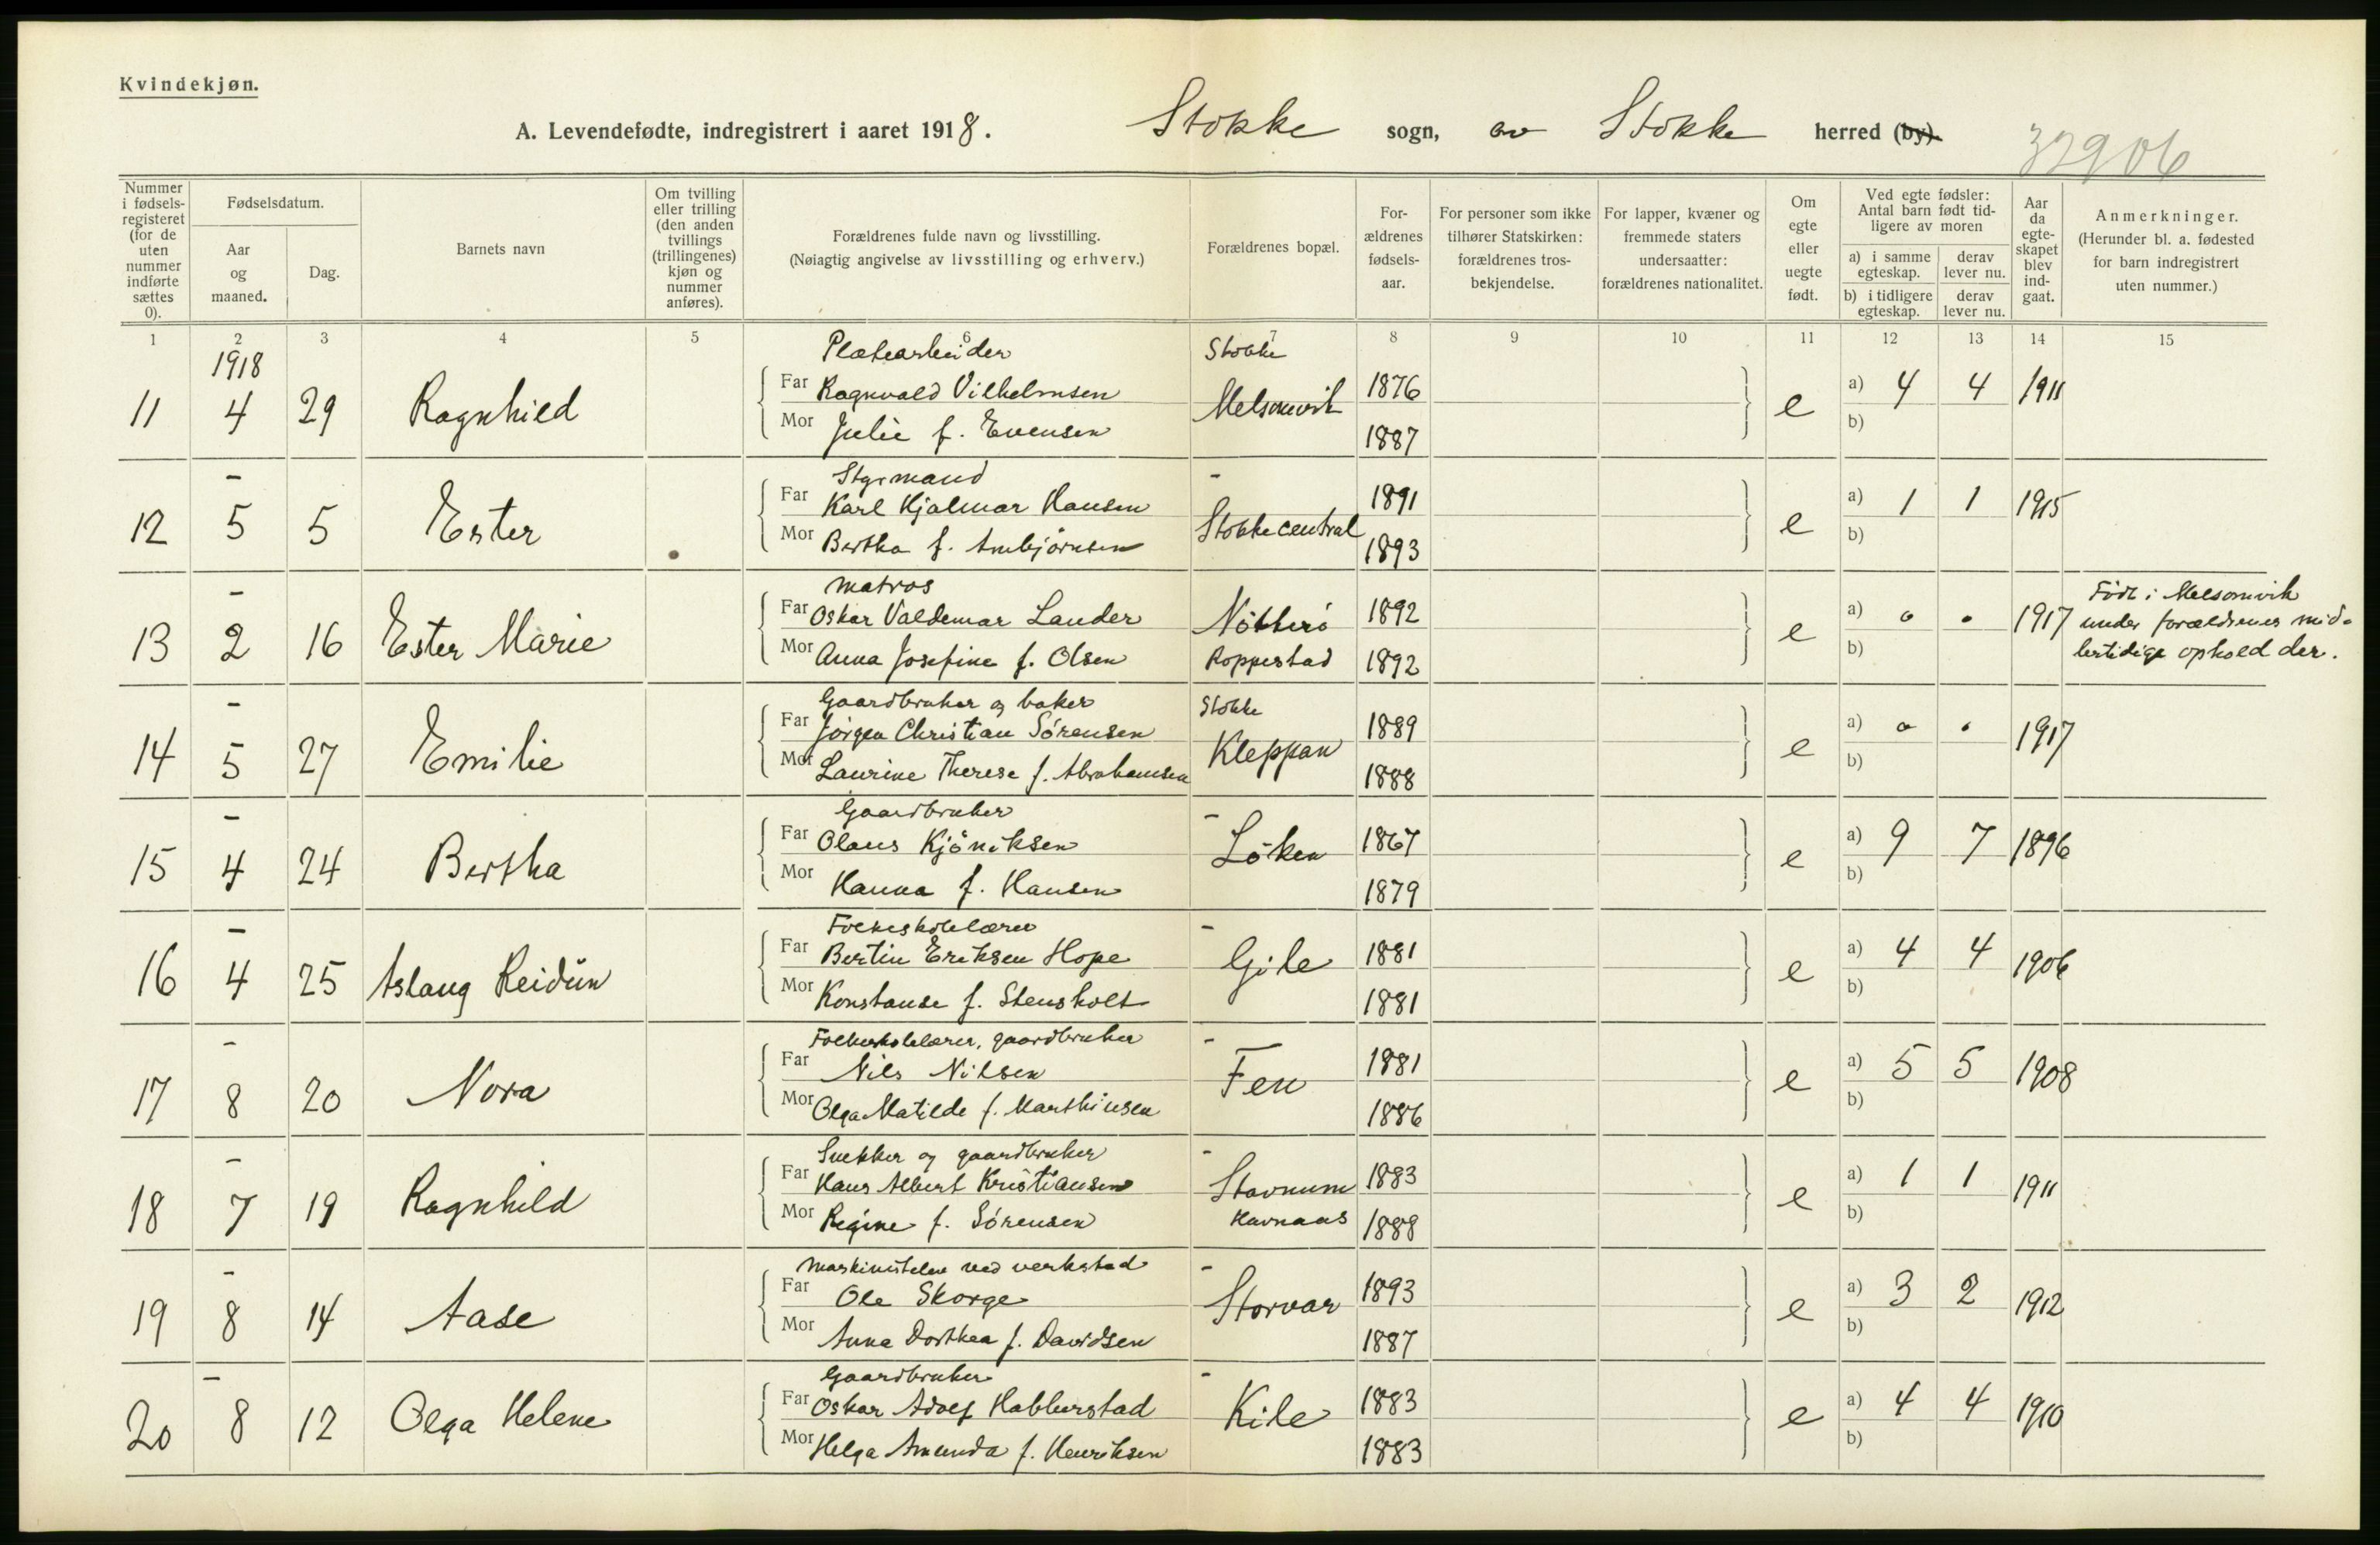 Kvindekjøn.
A. Levendefødte, indregistrert i aaret 1918. Stokke sogn, av Stokke herred (by).
32906
Nummer i fødselsregisteret (for de uten nummer indførte sættes 0).
Fødselsdatum.
Aar og maaned.
Dag.
Barnets navn
Om tvilling eller trilling (den anden tvillings (trillingenes) kjøn og nummer anføres).
Forældrenes fulde navn og livsstilling.
(Nøiagtig angivelse av livsstilling og erhverv.)
Forældrenes bopæl.
Forældrenes fødselsaar.
For personer som ikke tilhører Statskirken: forældrenes trosbekjendelse.
For lapper, kvæner og fremmede staters undersaatter: forældrenes nationalitet.
Om egte eller uegte født.
Ved egte fødsler: Antal barn født tidligere av moren
a) i samme egteskap. derav lever nu.
b) i tidligere egteskap. derav lever nu.
Aar da egteskapet blev indgaat.
Anmerkninger.
(Herunder bl. a. fødested for barn indregistrert uten nummer.)
1 2 3 4 5 6 7 8 9 10 11 12 13 14 15
1918 Platearbeider Stokke
11 4 29 Ragnhild Far Ragnvald Vilhelmsen Melsomvik 1876 e a) 4 4 1911
Mor Julie f. Evensen 1887 b)
– Styrmand –
12 5 5 Ester Far Karl Hjalmar Hansen Stokke central 1891 e a) 1 1 1915
Mor Bertha f. Ambjörnsen 1893 b)
– Matros
13 2 16 Ester Marie Far Oskar Valdemar Lander Nötterö 1892 e a) o o 1917 Födt i Melsomvik under forældrenes midlertidige ophold der.
Mor Anna Josefine f. Olsen Roppestad 1892 b)
– Gaardbruker og baker Stokke
14 5 27 Emilie Far Jörgen Christian Sörensen Kleppan 1889 e a) o o 1917
Mor Laurine Therese f. Abrahamsen 1888 b)
– Gaardbruker –
15 4 24 Bertha Far Olaus Kjöniksen Löken 1867 e a) 9 7 1896
Mor Hanna f. Hansen 1879 b)
– Folkeskolelærer –
16 4 25 Aslaug Reidun Far Bertin Eriksen Hope Gile 1881 e a) 4 4 1906
Mor Konstanse f. Stensholt 1881 b)
– Folkeskolelærer, gaardbruker –
17 8 20 Nora Far Nils Nilsen Fen 1881 e a) 5 5 1908
Mor Olga Matilde f. Marthinsen 1886 b)
– Snekker og gaardbruker –
18 7 19 Ragnhild Far Hans Albert Kristiansen Stavnum 1883 e a) 1 1 1911
Mor Regine f. Sörensen Havnaas 1888 b)
– Maskinistelev ved verksted –
19 8 14 Aase Far Ole Skorge Storvar 1893 e a) 3 2 1912
Mor Anna Dorthea f. Davidsen 1887 b)
– Gaardbruker –
20 8 12 Olga Helene Far Oskar Adolf Hablerstad Kile 1883 e a) 4 4 1910
Mor Helga Amunda f. Henriksen 1883 b)